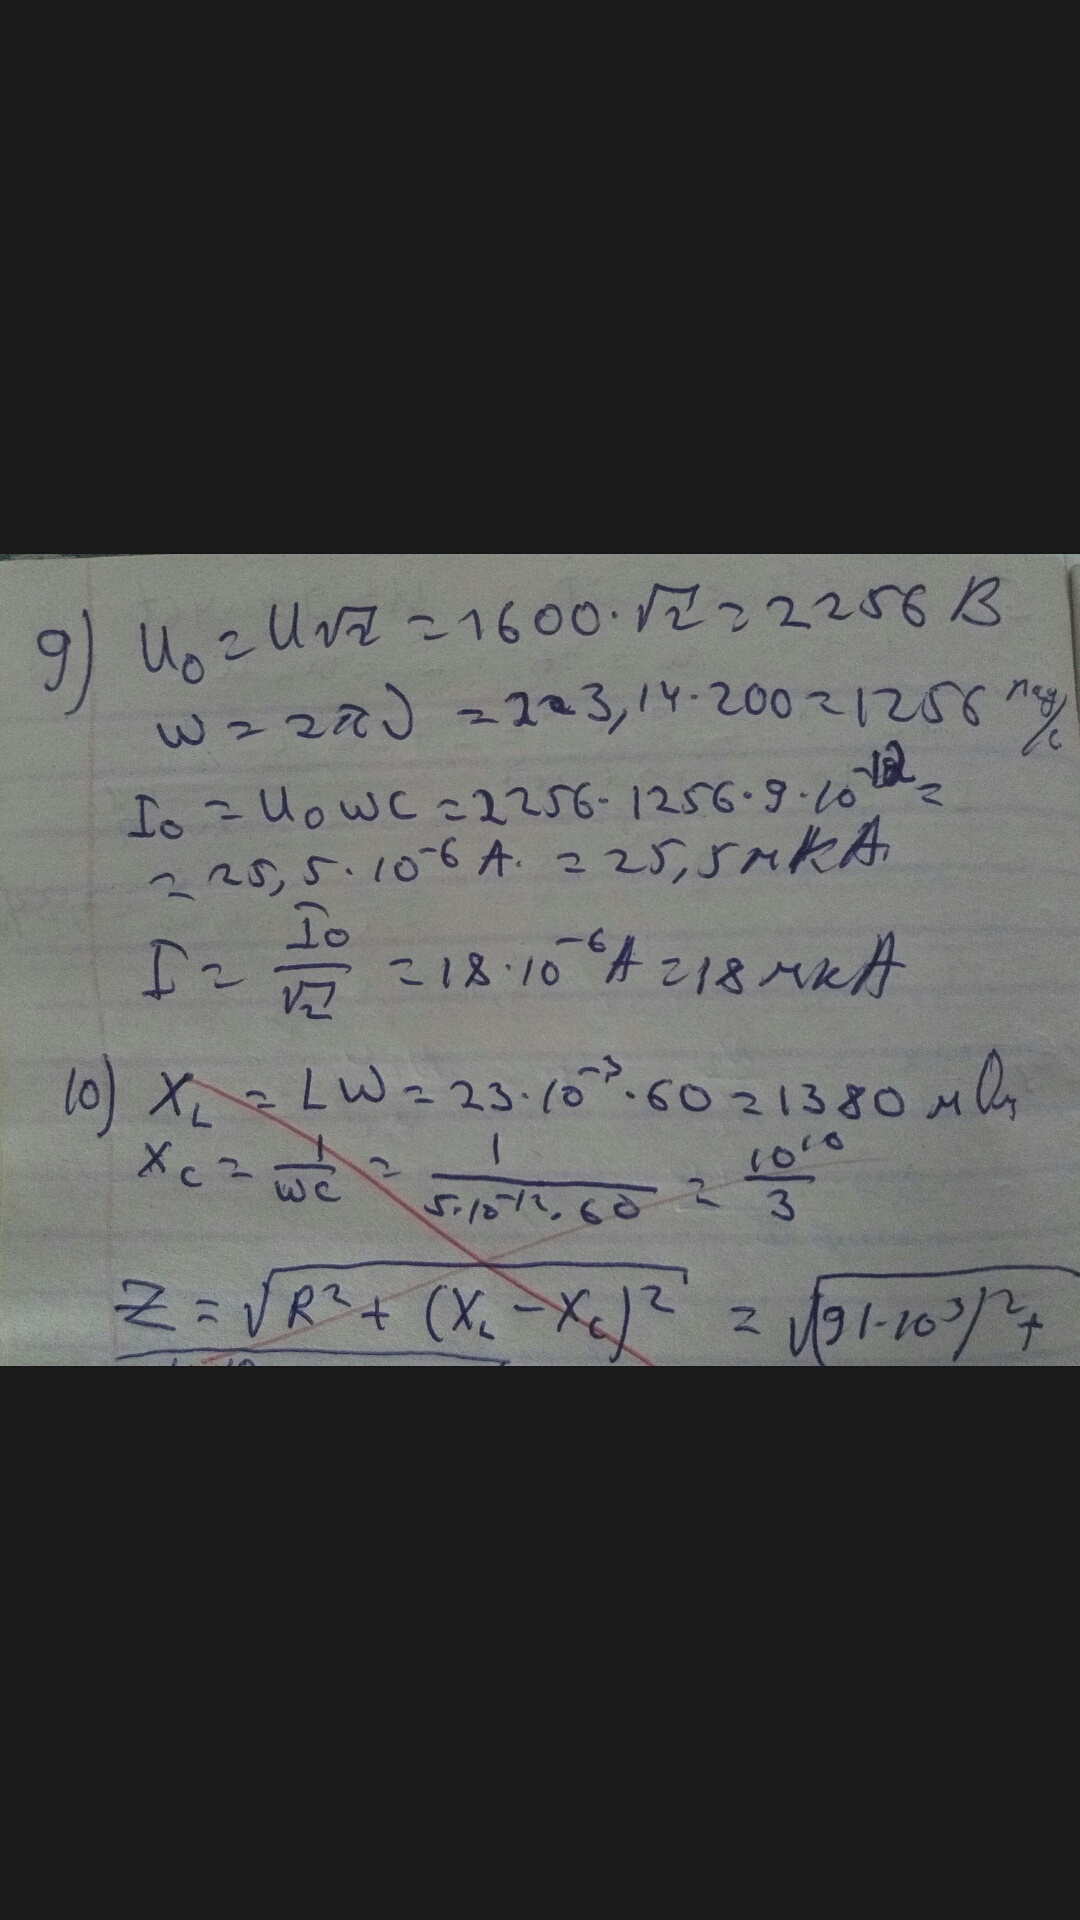 9) U₀ = U√2 = 1600·√2 = 2256 В
ω = 2πν = 2·3,14·200 = 1256 рад/с
I₀ = U₀ωC = 2256·1256·9·10⁻¹² =
= 25,5·10⁻⁶ А. = 25,5 мкА.
I = I₀/√2 = 18·10⁻⁶ А = 18 мкА
10) X_L = Lω = 23·10⁻³·60 = 1380 мОм
X_C = 1/ωC = 1/5·10⁻¹²·60 = 10¹⁰/3
Z = √R² + (X_L - X_C)² = √(91·10³)² +